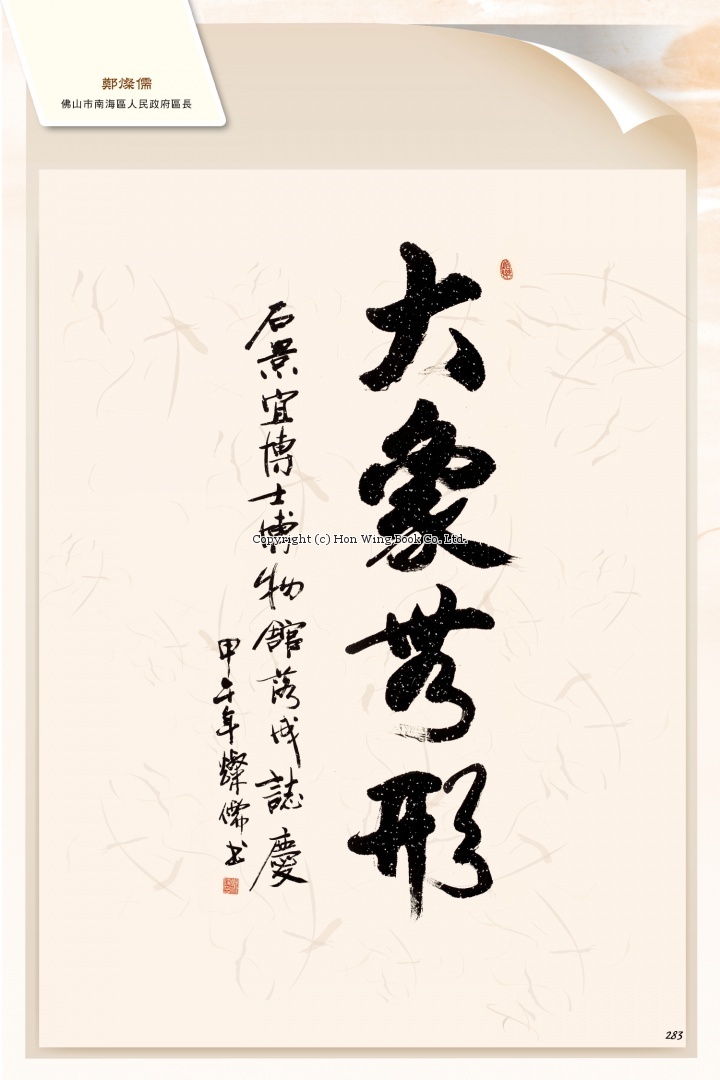 鄭燦儒
佛山市南海區人民政府區長
大象無形
石景宜博士博物館落成誌慶
甲午年燦儒书
Copyright (c) Hon Wing Book Co. Ltd.
283